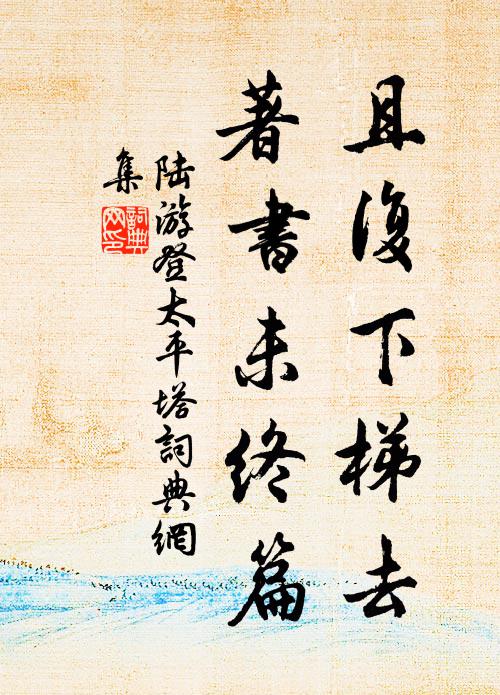 且復下梯去
著書未終篇
陸游登太平塔詞典網
集
詞典
网印